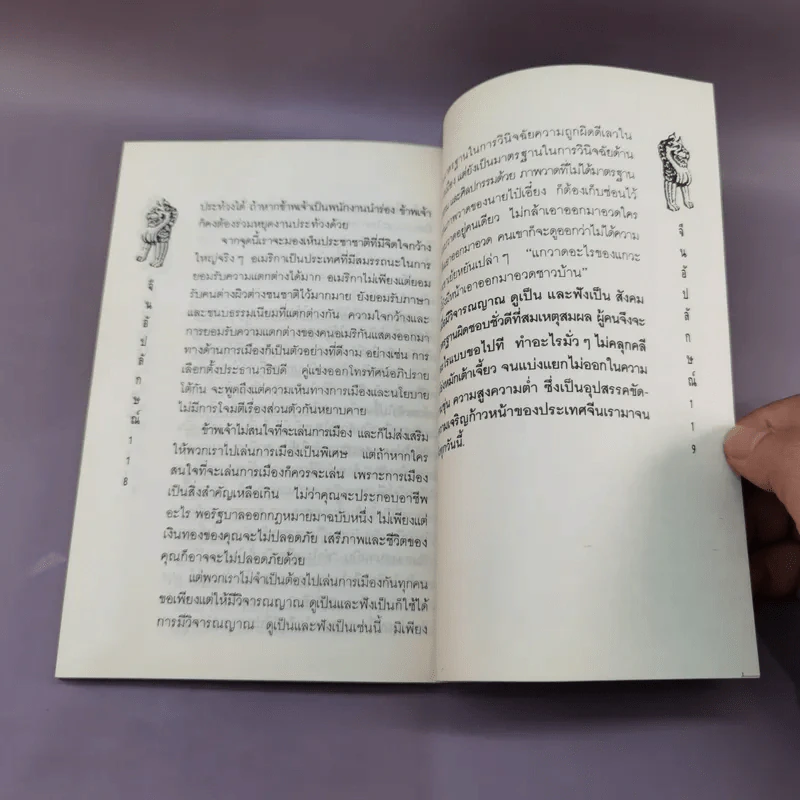 ประท้วงได้ ถ้าหากข้าพเจ้าเป็นพนักงานนำร่อง ข้าพเจ้า
ก็คงต้องร่วมหยุดงานประท้วงด้วย
จากจุดนี้เราจะมองเห็นประชาชาติที่มีจิตใจกว้าง
ใหญ่จริงๆ อเมริกาเป็นประเทศที่มีสมรรถนะในการ
ยอมรับความแตกต่างได้มาก อเมริกาไม่เพียงแต่ยอม
รับคนต่างผิวต่างชนชาติไว้มากมาย ยังยอมรับภาษา
และขนบธรรมเนียมที่แตกต่างกัน ความใจกว้างและ
การยอมรับความแตกต่างของคนอเมริกันแสดงออกมา
ทางด้านการเมืองก็เป็นตัวอย่างที่ดีงาม อย่างเช่น การ
เลือกตั้งประธานาธิบดี คู่แข่งออกโทรทัศน์อภิปราย
ได้กัน จะพูดถึงแต่ความเห็นทางการเมืองและนโยบาย
ไม่มีการโจมตีเรื่องส่วนตัวกันหยาบคาย
ข้าพเจ้าไม่สนใจที่จะเล่นการเมือง และก็ไม่ส่งเสริม
ให้พวกเราไปเล่นการเมืองเป็นพิเศษ แต่ถ้าหากใคร
สนใจที่จะเล่นการเมืองก็ควรจะเล่น เพราะการเมือง
เป็นสิ่งสำคัญเหลือเกิน ไม่ว่าคุณจะประกอบอาชีพ
อะไร พอรัฐบาลออกกฎหมายมาฉบับหนึ่ง ไม่เพียงแต่
เงินทองของคุณจะไม่ปลอดภัย เสรีภาพและชีวิตของ
คุณก็อาจจะไม่ปลอดภัยด้วย
แต่พวกเราไม่จำเป็นต้องไปเล่นการเมืองกันทุกคน
ขอเพียงแต่ให้มีวิจารณญาณ ดูเป็นและฟังเป็นก็ใช้ได้
การมีวิจารณญาณ ดูเป็นและฟังเป็นเช่นนี้ มิเพียง
จีนอัปลักษณ์ 118
ฐานในการวินิจฉัยความถูกผิดดีเลวใน
แต่ยังเป็นมาตรฐานในการวินิจฉัยด้าน
และศิลปกรรมด้วย ภาพวาดที่ไม่ได้มาตรฐาน
ภาพวาดของนายไป๋เอี๋ยง ก็ต้องเก็บซ่อนไว้
อยู่คนเดียว ไม่กล้าเอาออกมาอวดใคร
ออกมาอวด คนเขาก็จะดูออกว่าไม่ได้ความ
หยันเปล่าๆ "แกวาดอะไรของแกวะ
หน้าเอาออกมาอวดชาวบ้าน"
มีวิจารณญาณ ดูเป็น และฟังเป็น สังคม
ฐานผิดชอบชั่วดีที่สมเหตุสมผล ผู้คนจึงจะ
แบบขอไปที ทำอะไรมั่วๆ ไม่คลุกคลี
หมักเต้าเจี้ยว จนแบ่งแยกไม่ออกในความ
ความสูงความต่ำ ซึ่งเป็นอุปสรรคขัด-
เจริญก้าวหน้าของประเทศจีนเรามาจน
ทุกวันนี้.
จีนอัปลักษณ์ 119